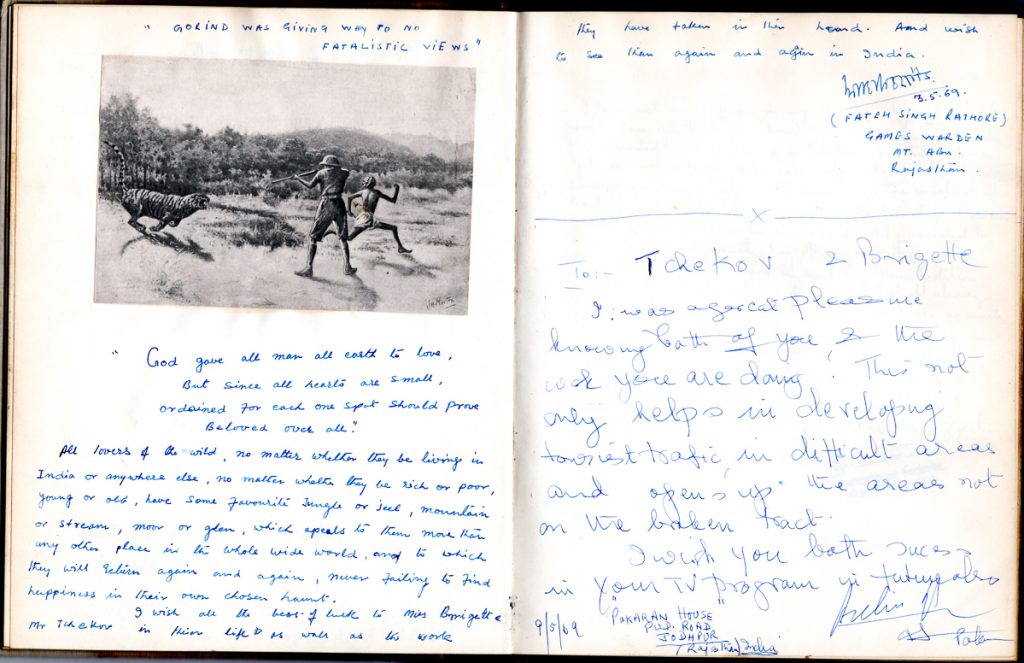 " GORIND WAS GIVING WAY TO NO
FATALISTIC VIEWS"
" God gave all man all earth to love,
But since all hearts are small,
ordained for each one spot should prove
Beloved over all."
All lovers of the wild, no matter whether they be living in
India or anywhere else, no matter whether they be rich or poor,
young or old, have some favourite Jungle or jeel, mountain
or stream, moor or glen, which apeals to them more than
any other place in the whole wide world, and to which
they will return again and again, never failing to find
happiness in their own chosen haunt.
I wish all the best of luck to Miss Brrigette &
Mr Tchekov in their life as well as the work
they have taken in their heard. And wish
to see than again and agin in India.
3.5.69.
(FATEH SINGH RATHORE)
GAMES WARDEN
MT. ABU.
Rajasthan.
x
To:- Tchekov & Brrigette
I was a great pleasure
knowing both of you & the
work you are doing! This not
only helps in developing
touriest trafic, in difficult areas
and opens up the areas not
on the broken tract.
I wish you both sucess
in your TV program in future also
"POKARAN HOUSE"
P.W.D. ROAD
9/5/69 JODHPUR
(Rajasthan) India